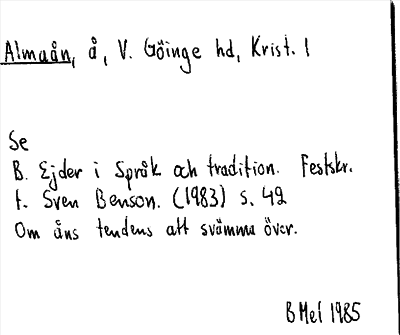 Almaån, å, V. Göinge hd, Krist. l
Se
B. Ejder i Språk och tradition. Festskr.
t. Sven Benson. (1983) s. 49
Om åns tendens att svämma över.
BMel 1985